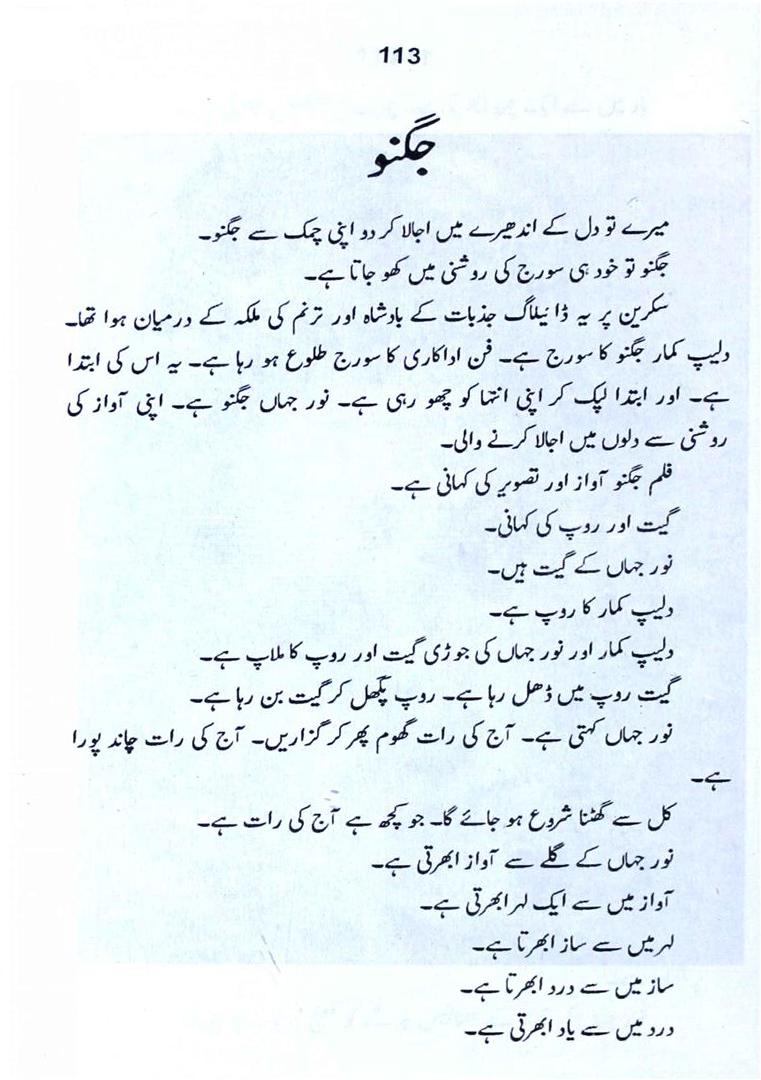 113
جگنو
میرے تو دل کے اندھیرے میں اجالا کر دو اپنی چمک سے جگنو۔
جگنو تو خود ہی سورج کی روشنی میں کھو جاتا ہے۔
سکرین پر یہ ڈائیلاگ جذبات کے بادشاہ اور ترنم کی ملکہ کے درمیان ہوا تھا۔
دلیپ کمار جگنو کا سورج ہے۔ فن اداکاری کا سورج طلوع ہو رہا ہے۔ یہ اس کی ابتدا
ہے۔ اور ابتدا لپک کر اپنی انتہا کو چھو رہی ہے۔ نور جہاں جگنو ہے۔ اپنی آواز کی
روشنی سے دلوں میں اجالا کرنے والی۔
فلم جگنو آواز اور تصویر کی کہانی ہے۔
گیت اور روپ کی کہانی۔
نور جہاں کے گیت ہیں۔
دلیپ کمار کا روپ ہے۔
دلیپ کمار اور نور جہاں کی جوڑی گیت اور روپ کا ملاپ ہے۔
گیت روپ میں ڈھل رہا ہے۔ روپ پگھل کر گیت بن رہا ہے۔
نور جہاں کہتی ہے۔ آج کی رات گھوم پھر کر گزاریں۔ آج کی رات چاند پورا
ہے۔
کل سے گھٹنا شروع ہو جائے گا۔ جو کچھ ہے آج کی رات ہے۔
نور جہاں کے گلے سے آواز ابھرتی ہے۔
آواز میں سے ایک لہر ابھرتی ہے۔
لہر میں سے ساز ابھرتا ہے۔
ساز میں سے درد ابھرتا ہے۔
درد میں سے یاد ابھرتی ہے۔